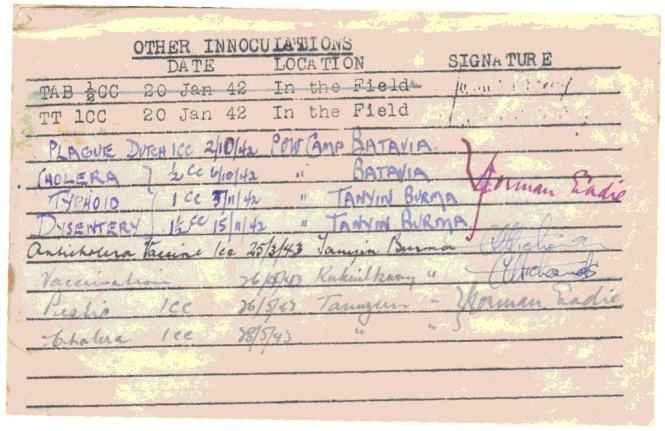 OTHER INNOCULATIONS
DATE LOCATION SIGNATURE
TAB ½CC 20 Jan 42 In the Field
TT 1CC 20 Jan 42 In the Field
PLAGUE DUTCH 1CC 2/10/42 POW CAMP BATAVIA
CHOLERA ½ CC 6/10/42 " BATAVIA Norman Eadie
TYPHOID 1 CC 5/11/42 " TANYIN BURMA
DYSENTERY 1½ CC 15/11/42 " TANYIN BURMA
Anticholera Vaccine 1cc 25/3/43 Tanyin Burma
Vaccination "
1cc 26/5/43 " Norman Eadie
Cholera 1cc 28/5/43 " "